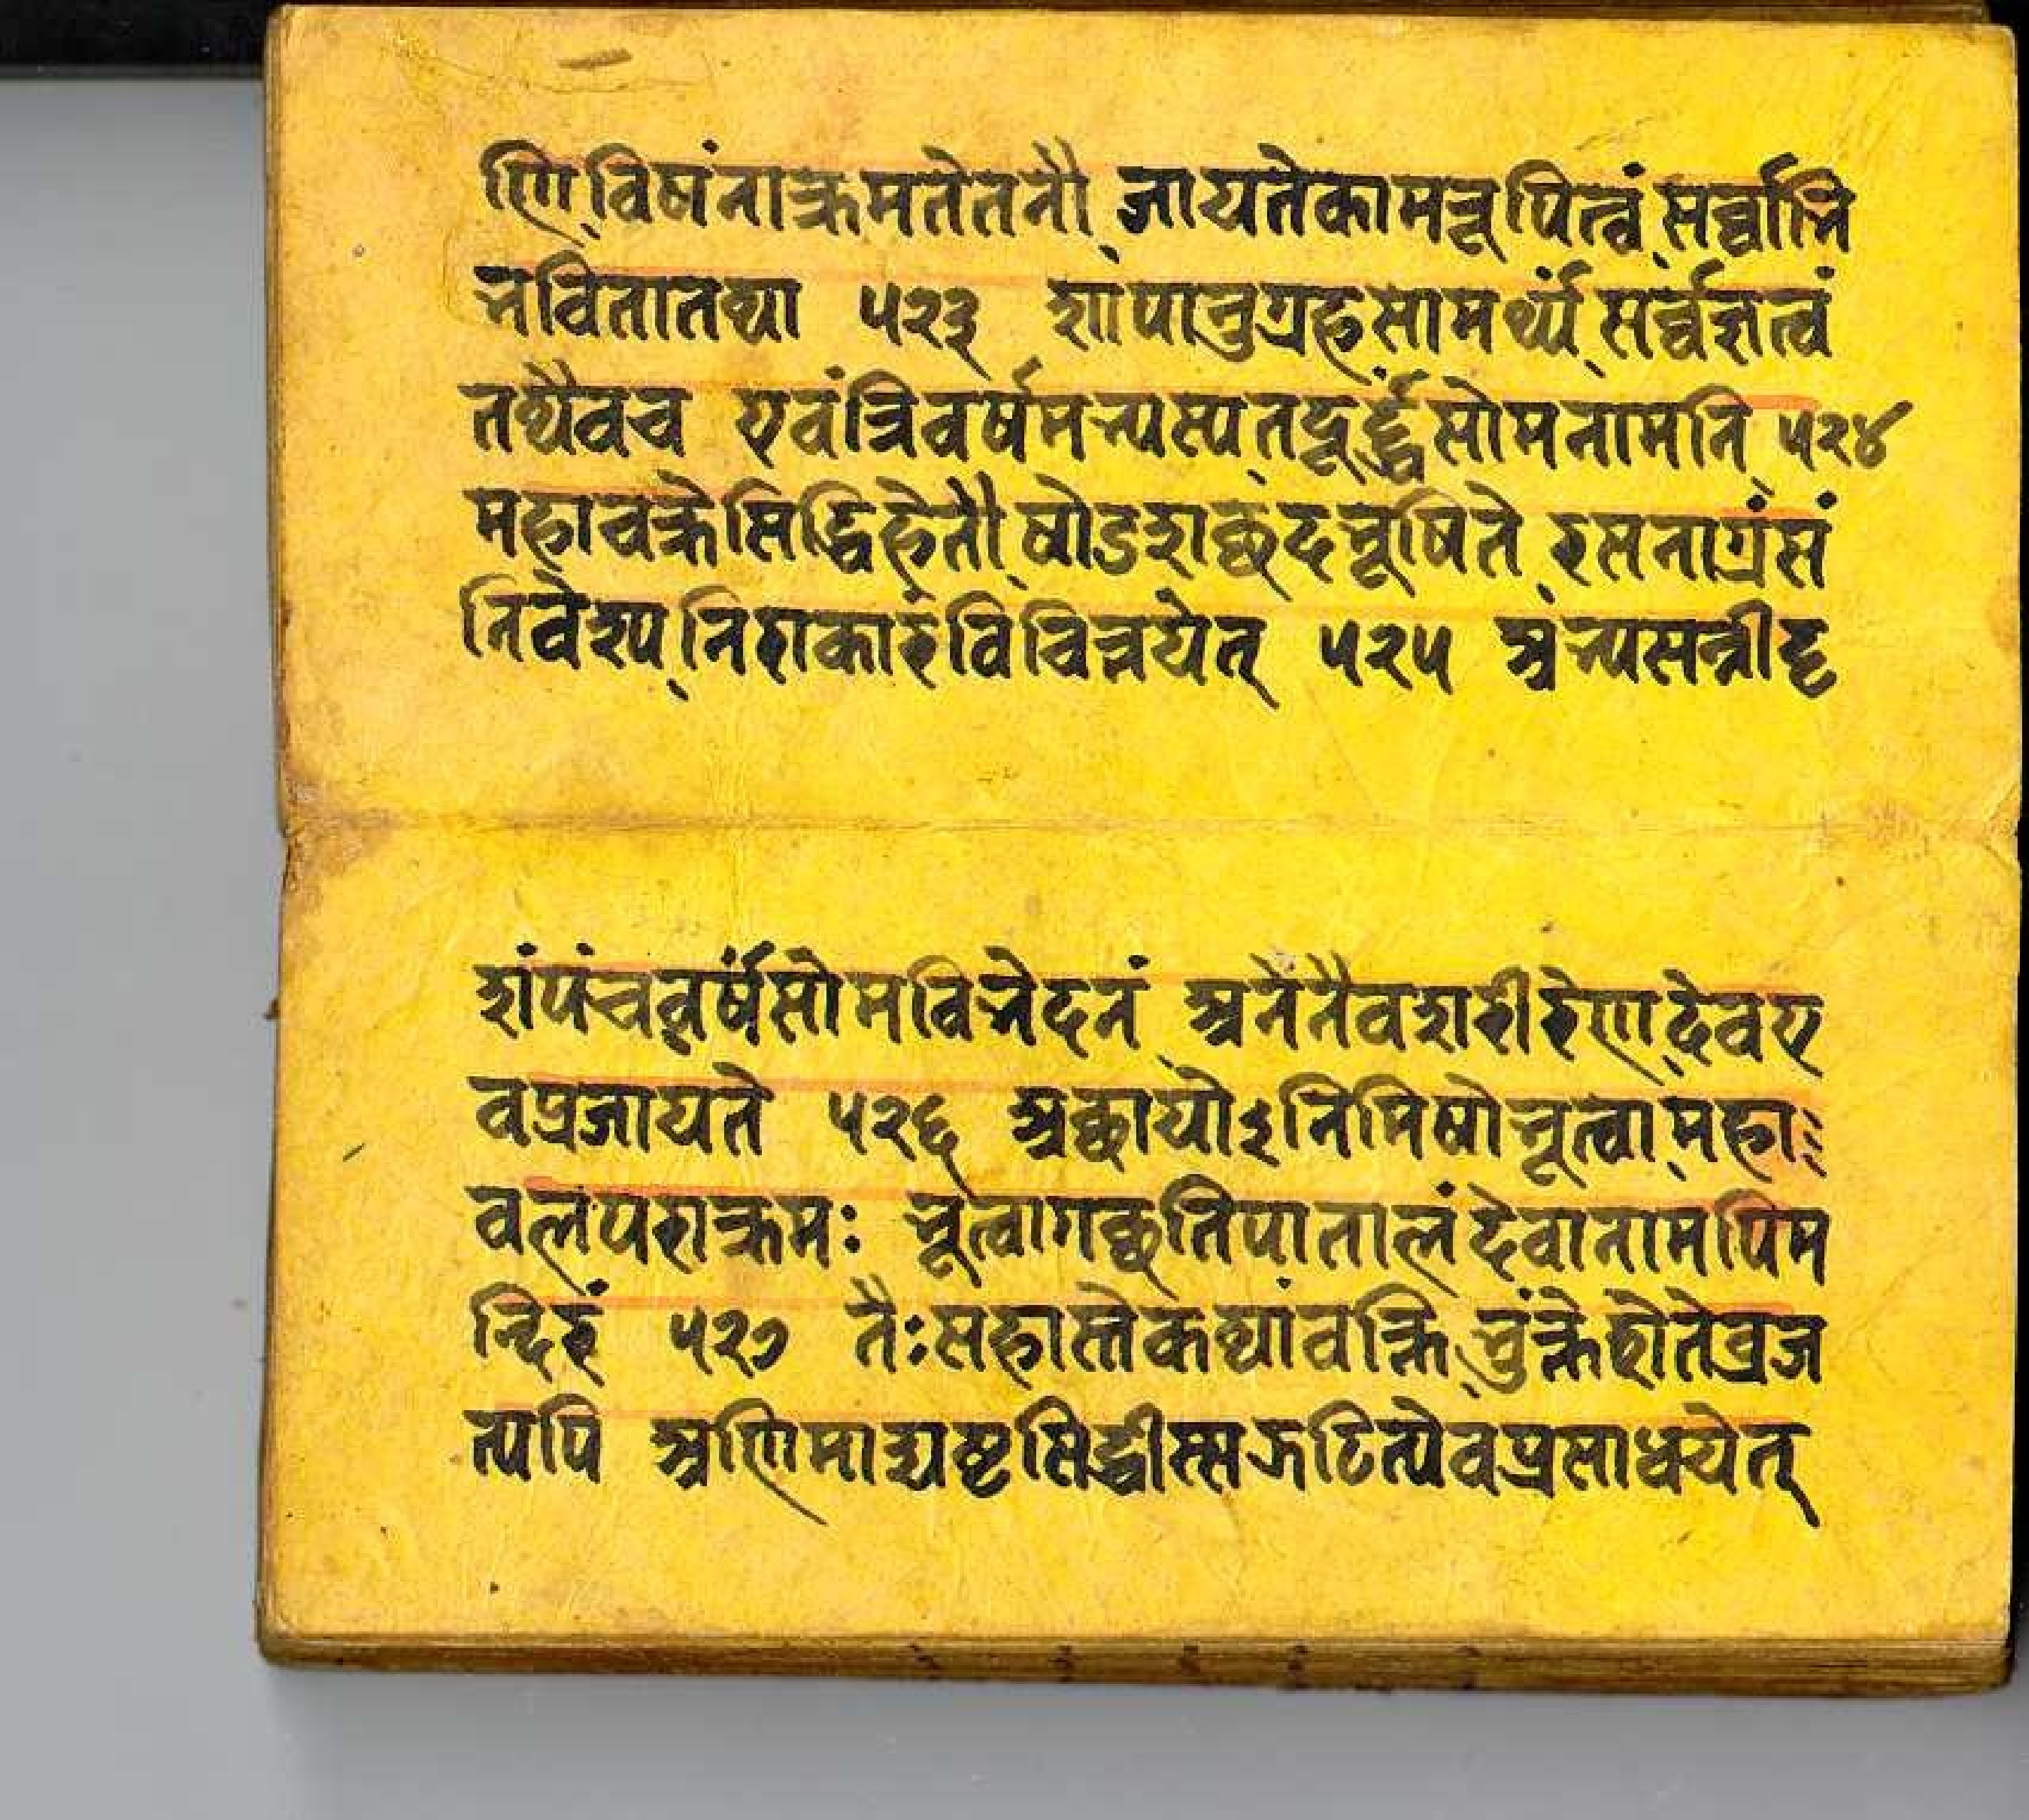 णिविषंनाक्रमतेतनौ जायतेकामरूपित्वंसर्व्वाभि
भवितातथा ५२३ शापानुग्रहसामर्थ्यंसर्व्वज्ञत्वं
तथैवच एवंत्रिवर्षमभ्यस्यतदूर्द्ध्वंसोमनामनि ५२४
महाचक्रेसिद्धिहेतौषोडशछदभूषिते रसनाग्रंसं
निवेश्यनिराकारंविचिन्तयेत् ५२५ अभ्यसन्नीदृ
शंपंचवर्षंसोमविभेदनं अनेनैवशरीरेणदेवए
वप्रजायते ५२६ अछायोऽनिमिषोभूत्वामहा
वलपराक्रमः भूत्वागछतिपातालंदेवानामपिम
न्दिरं ५२७ तैःसहास्तेकथांवक्तिभुंक्तेशेतेव्रज
त्यपि अणिमाद्यष्टसिद्धीस्सझटित्येवप्रसाधयेत्